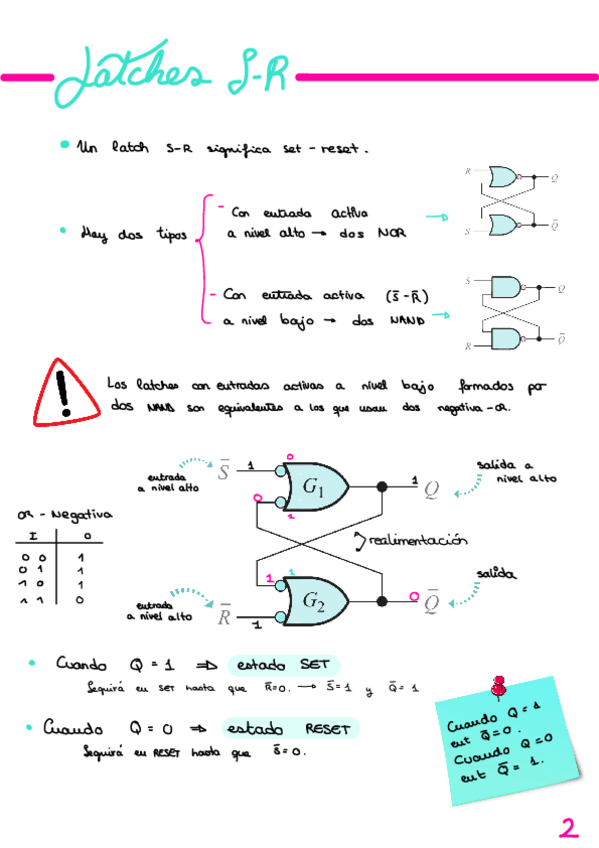 Latches S-R
• Un latch S-R significa set - reset.
• Hay dos tipos
- Con entrada activa
a nivel alto → dos NOR
R
Q
S
Q̅
- Con entrada activa (S̅-R̅)
a nivel bajo → dos NAND
S
Q
R
Q̅
!
Los latches con entradas activas a nivel bajo formados por
dos NAND son equivalentes a los que usan dos negativa-OR.
entrada
a nivel alto
S̅
1
0
0
1
G1
1
Q
salida a
nivel alto
OR - Negativa
I O
0 0 1
0 1 1
1 0 1
1 1 0
realimentación
entrada
a nivel alto
R̅
1
1
1
G2
0
Q̅
salida
• Cuando Q = 1 ⇒ estado SET
Seguirá en SET hasta que R̅=0. → S̅=1 y Q̅=1
• Cuando Q = 0 ⇒ estado RESET
Seguirá en RESET hasta que S̅=0.
Cuando Q=1
ent Q̅=0.
Cuando Q=0
ent Q̅=1.
2